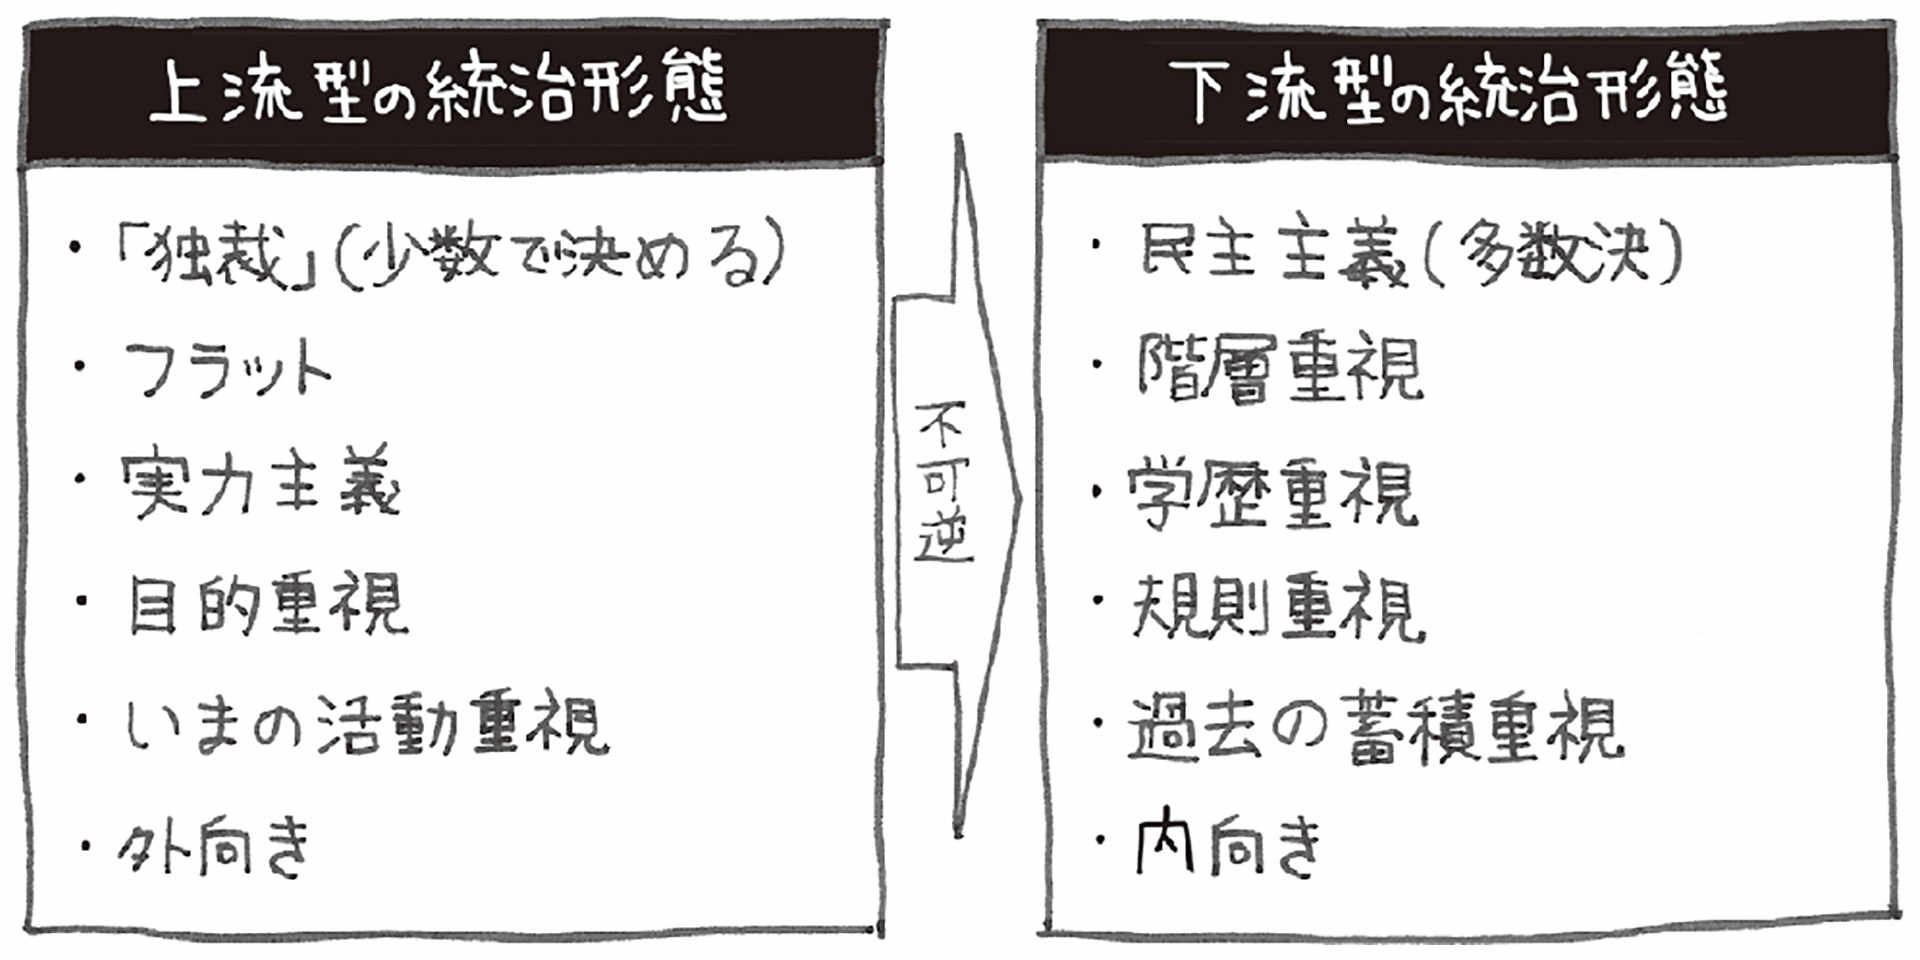 上流型の統治形態
・「独裁」(少数で決める)
・フラット
・実力主義
・目的重視
・いまの活動重視
・外向き
不可逆
下流型の統治形態
・民主主義(多数決)
・階層重視
・学歴重視
・規則重視
・過去の蓄積重視
・内向き